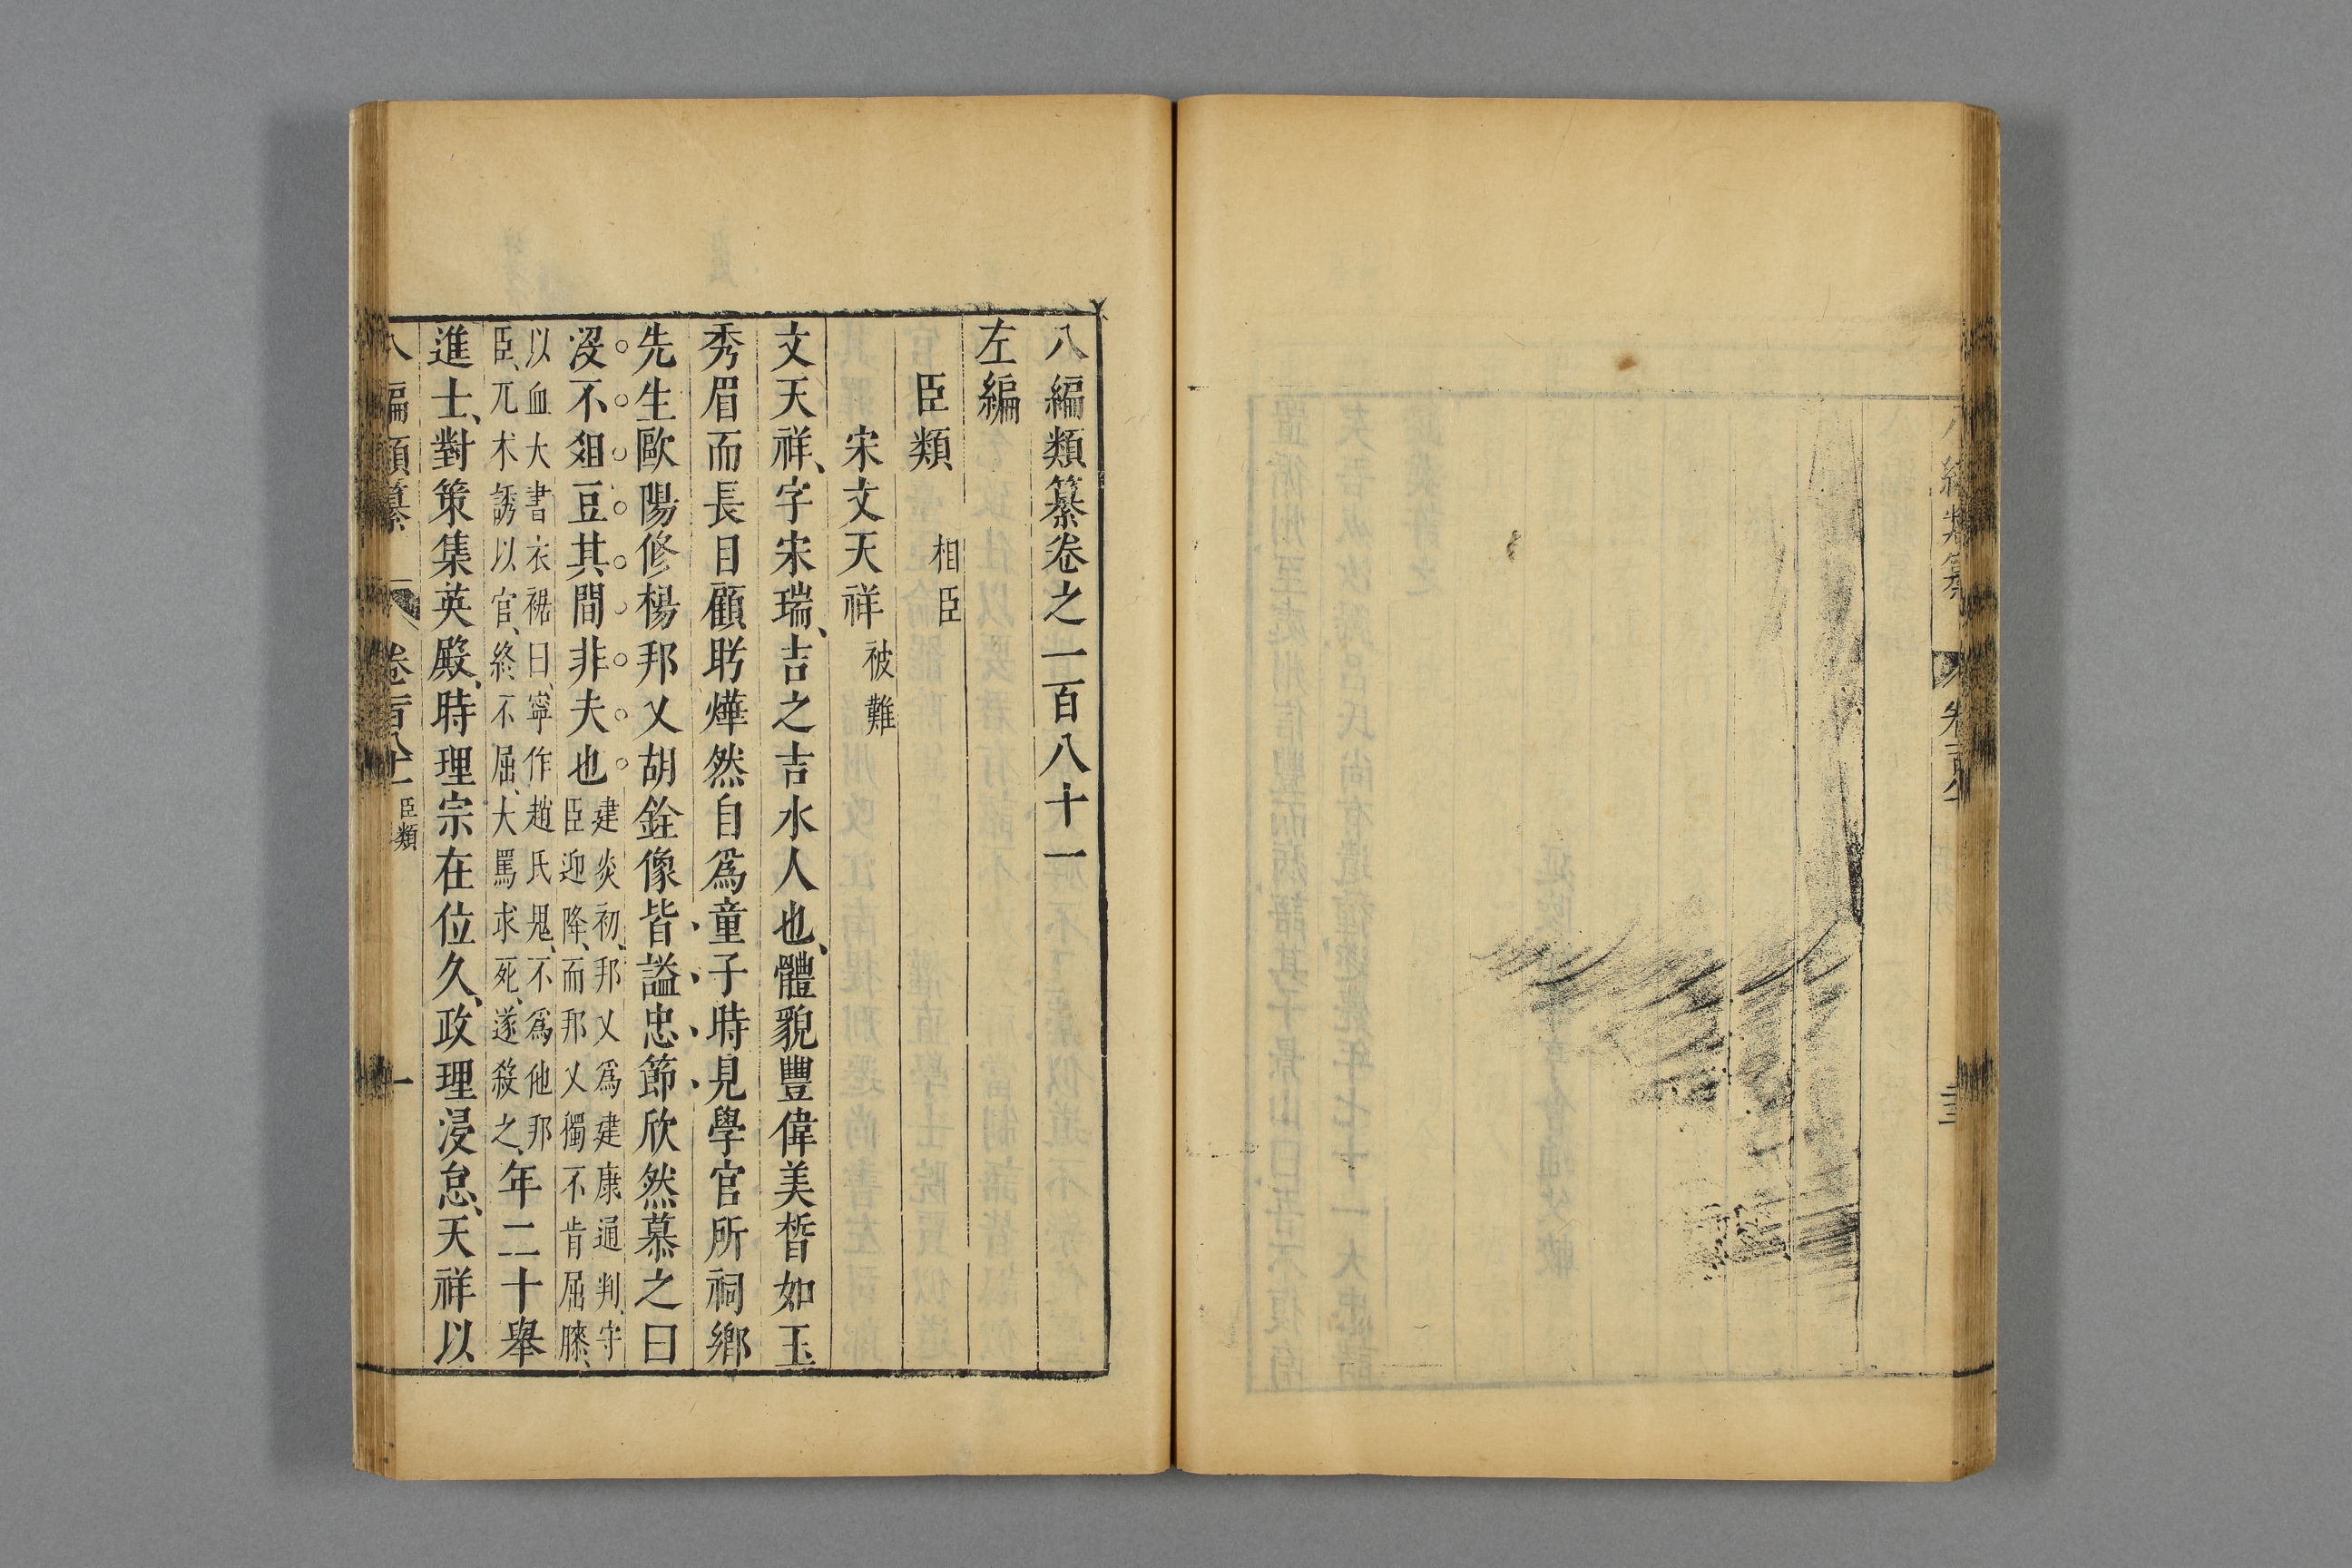 八編類纂卷之一百八十一
左編
臣類 相臣
宋文天祥 被難
文天祥、字宋瑞、吉之吉水人也、體貌豐偉美晳如玉
秀眉而長目顧盼燁然自爲童子時見學官所祠鄉
先生歐陽修楊邦乂胡銓像皆謚忠節欣然慕之曰
沒不俎豆其間非夫也
建炎初、邦乂爲建康通判、守
臣迎降、而邦乂獨不肯屈膝、
以血大書衣裾曰、寧作趙氏鬼、不爲他邦
臣、兀朮誘以官、終不屈、大罵求死、遂殺之、
年二十舉
進士、對策集英殿、時理宗在位久、政理浸怠、天祥以
八編類纂 卷一百八十一 臣類 一